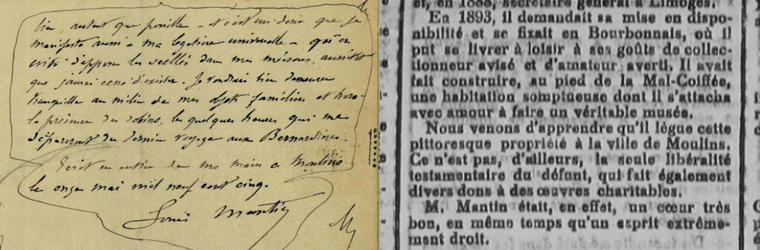 bien autant que possible - et c'est un désir que je
manifeste aussi à ma légataire universelle - qu'on
évite d'apposer les scellés dans ma maison, aussitôt
que j'aurai cessé d'exister. Je voudrais bien demeurer
tranquille au milieu de mes objets familiers et hors
la présence des robins, les quelques heures qui me
sépareront du dernier voyage aux Bernardières.
Ecrit en entier de ma main à Moulins
le onze mai mil neuf cent cinq.
Louis Mantin
et, en 1888, secrétaire général à Limoges.
En 1893, il demandait sa mise en dispo-
nibilité et se fixait en Bourbonnais, où il
put se livrer à loisir à ses goûts de collec-
tionneur avisé et d'amateur averti. Il avait
fait construire, au pied de la Mal-Coiffée,
une habitation somptueuse dont il s'attacha
avec amour à faire un véritable musée.
Nous venons d'apprendre qu'il lègue cette
pittoresque propriété à la ville de Moulins.
Ce n'est pas, d'ailleurs, la seule libéralité
testamentaire du défunt, qui fait également
divers dons à des œuvres charitables.
M. Mantin était, en effet, un cœur très
bon, en même temps qu'un esprit extrême-
ment droit.